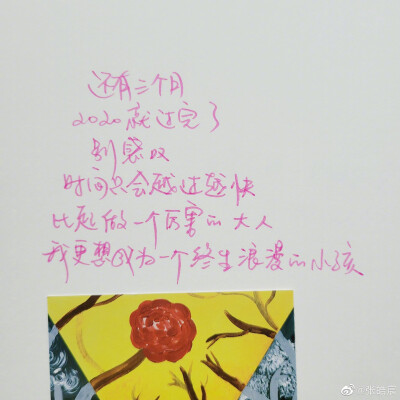 还有三个月
2020就过完了
别感叹
时间只会越过越快
比起做一个厉害的大人
我更想成为一个终生浪漫的小孩